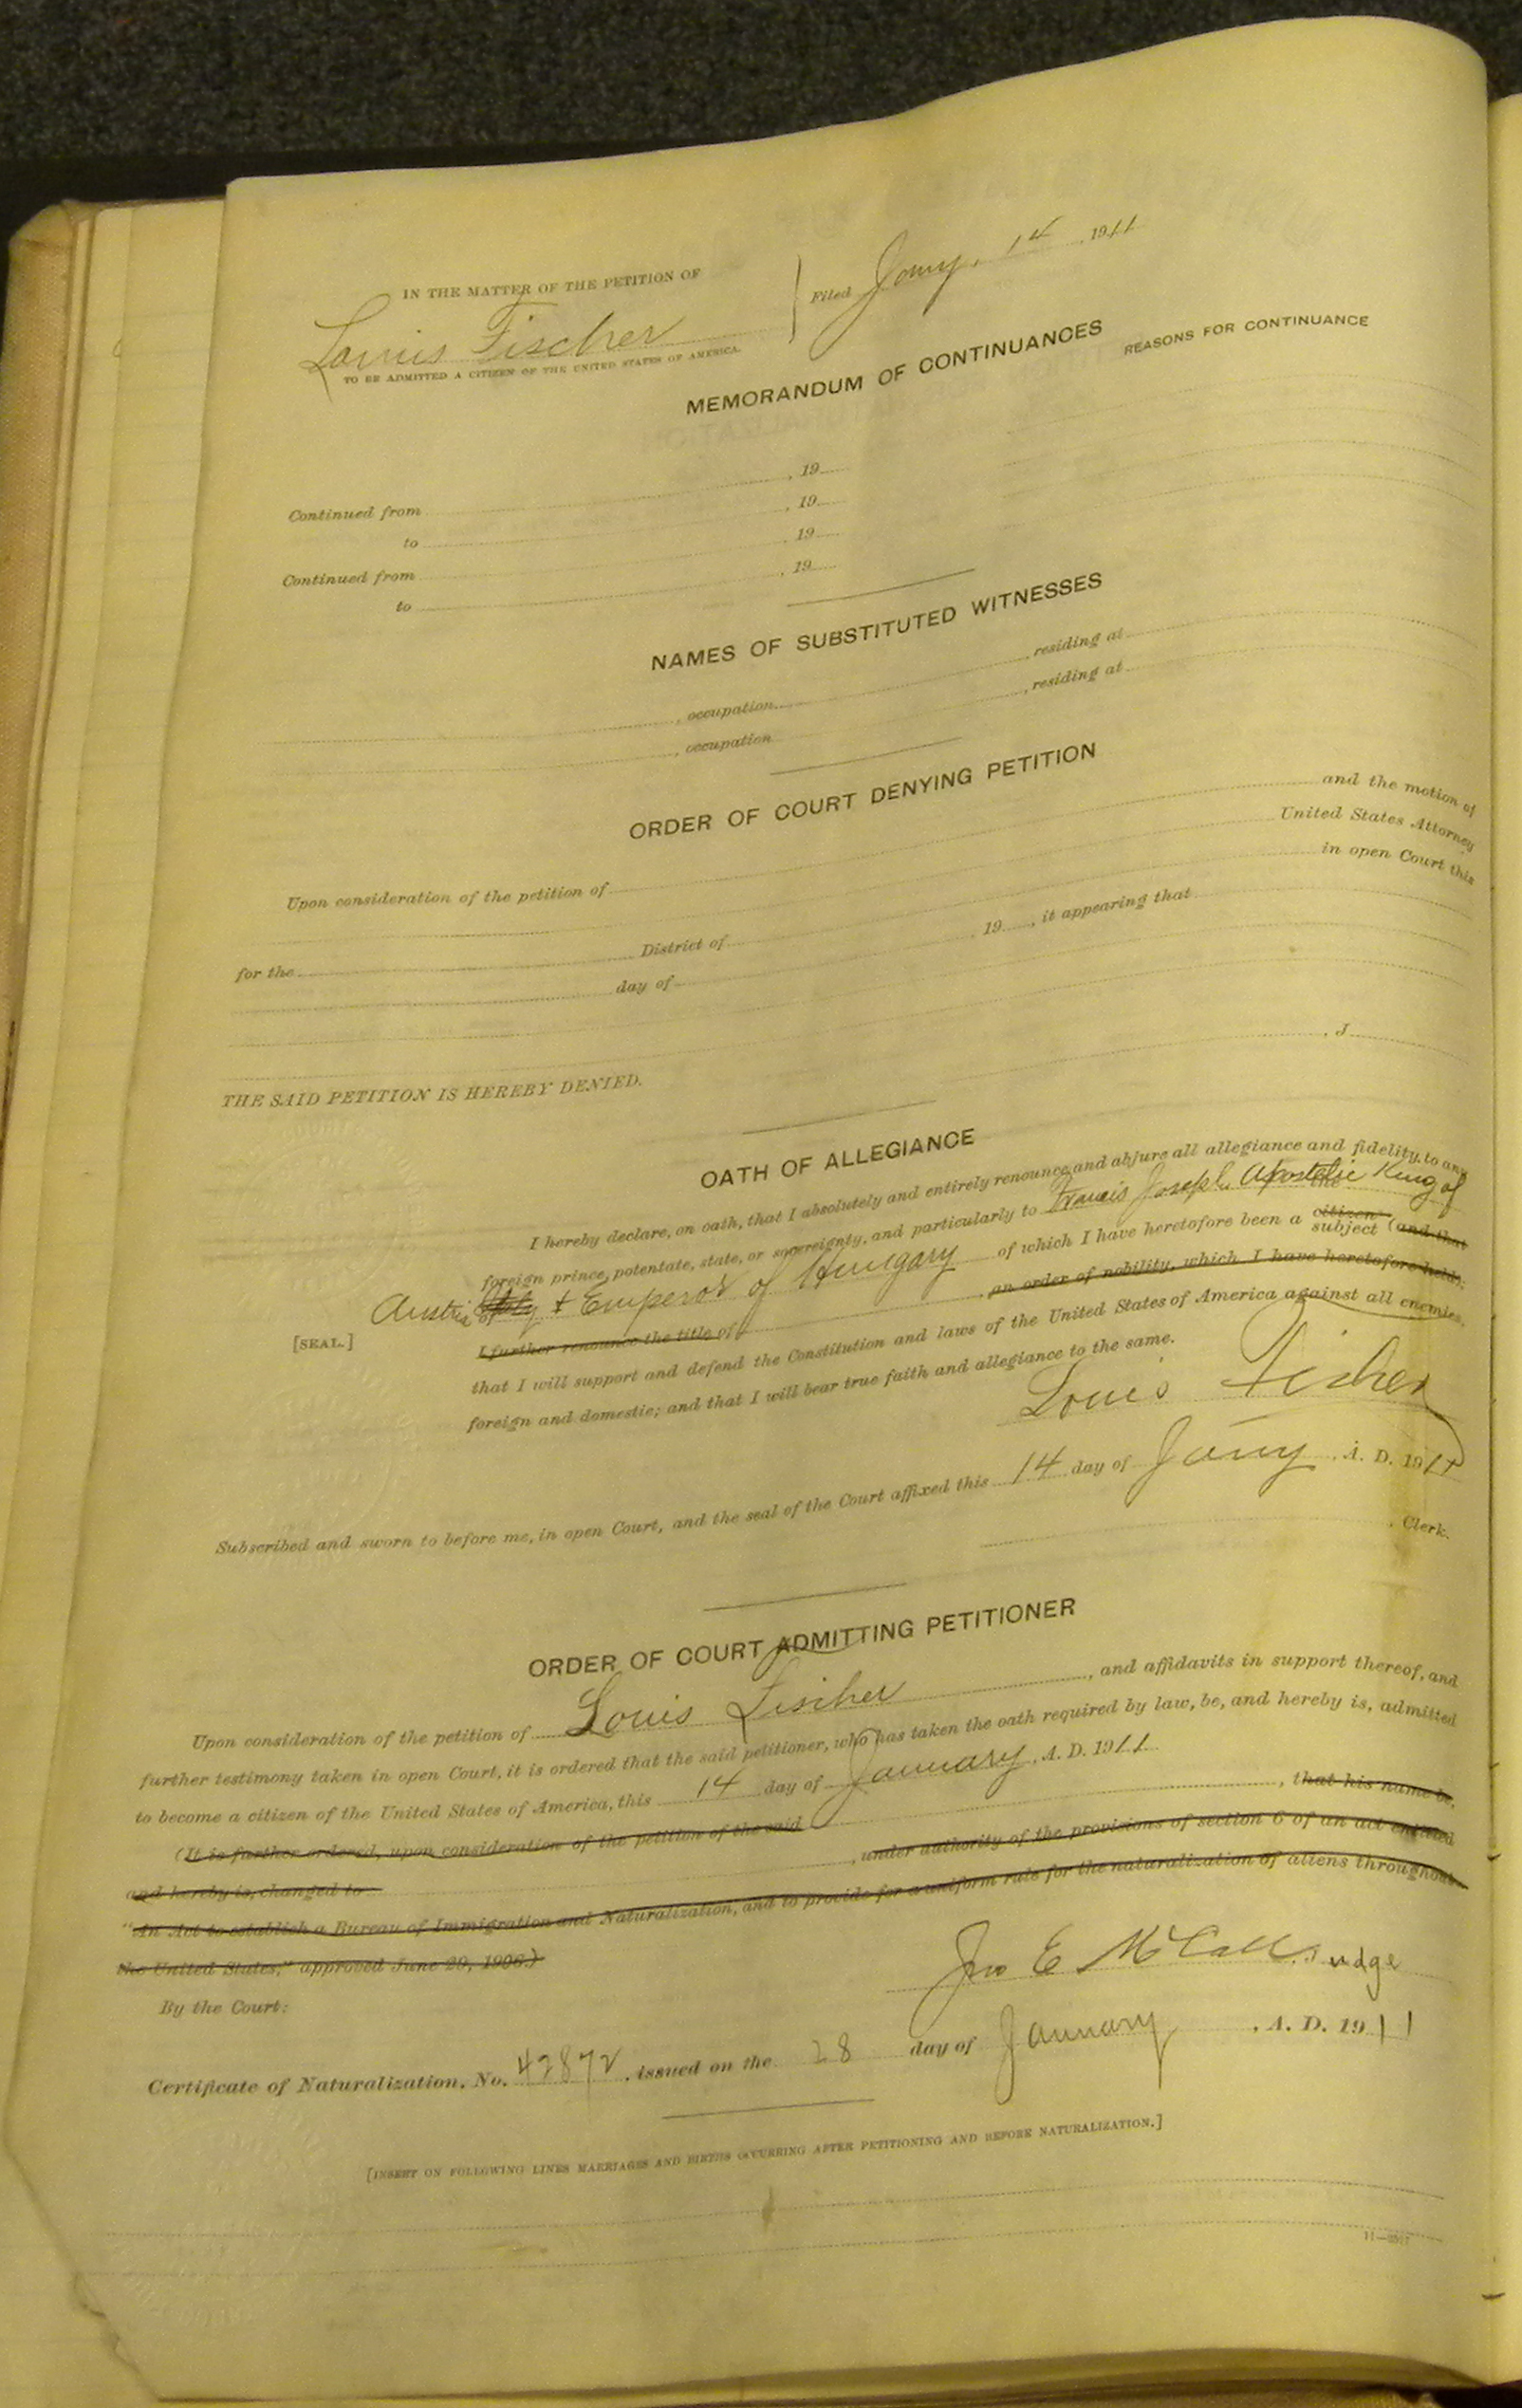 IN THE MATTER OF THE PETITION OF
Louis Fischer
TO BE ADMITTED A CITIZEN OF THE UNITED STATES OF AMERICA.
Filed Jany. 14, 1911
MEMORANDUM OF CONTINUANCES
REASONS FOR CONTINUANCE
Continued from , 19
to , 19
Continued from , 19
to , 19
NAMES OF SUBSTITUTED WITNESSES
, occupation , residing at
, occupation , residing at
ORDER OF COURT DENYING PETITION
Upon consideration of the petition of and the motion of
United States Attorney
for the District of in open Court this
day of , 19 , it appearing that
THE SAID PETITION IS HEREBY DENIED.
, J
OATH OF ALLEGIANCE
I hereby declare, on oath, that I absolutely and entirely renounce and abjure all allegiance and fidelity to any
foreign prince, potentate, state, or sovereignty, and particularly to Francis Joseph, Apostolic King of
Austria of Italy & Emperor of Hungary of which I have heretofore been a citizen subject (and that
[SEAL.]
I further renounce the title of , an order of nobility, which I have heretofore held;
that I will support and defend the Constitution and laws of the United States of America against all enemies,
foreign and domestic; and that I will bear true faith and allegiance to the same.
Louis Fischer
Subscribed and sworn to before me, in open Court, and the seal of the Court affixed this 14 day of Jany , A. D. 1911
, Clerk.
ORDER OF COURT ADMITTING PETITIONER
Upon consideration of the petition of Louis Fischer , and affidavits in support thereof, and
further testimony taken in open Court, it is ordered that the said petitioner, who has taken the oath required by law, be, and hereby is, admitted
to become a citizen of the United States of America, this 14 day of January , A. D. 1911
(It is further ordered, upon consideration of the petition of the said , that his name be,
and hereby is, changed to , under authority of the provisions of section 6 of an act entitled
"An Act to establish a Bureau of Immigration and Naturalization, and to provide for a uniform rule for the naturalization of aliens throughout
the United States," approved June 29, 1906.)
By the Court:
Jno E McCall, Judge
Certificate of Naturalization, No. 42872, issued on the 28 day of January , A. D. 1911
[INSERT ON FOLLOWING LINES MARRIAGES AND BIRTHS OCCURRING AFTER PETITIONING AND BEFORE NATURALIZATION.]